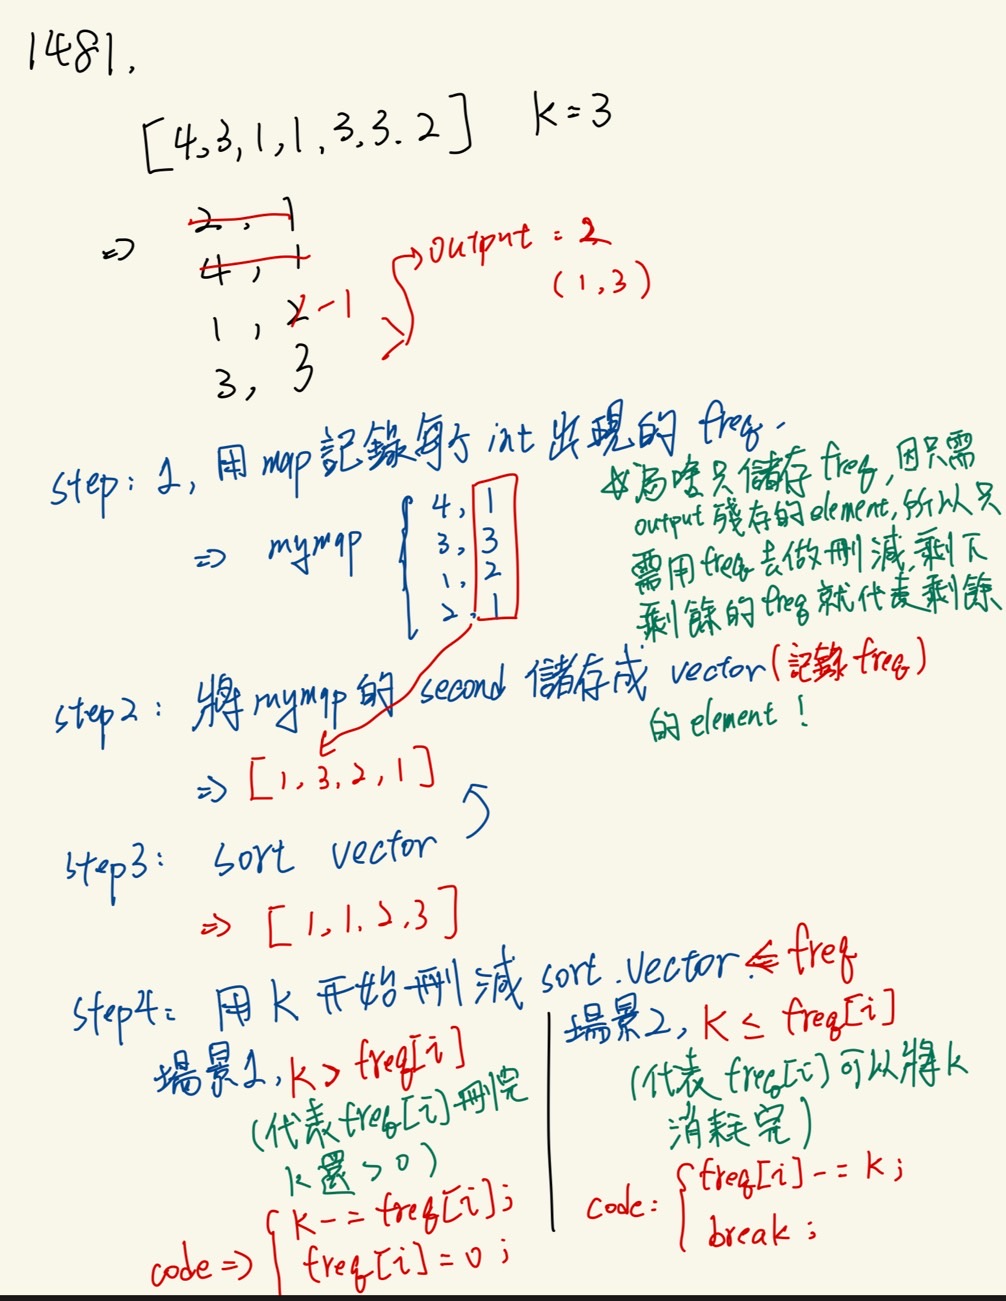 1481.
[4,3,1,1,3,3.2] k=3
⇒ 2, 1
4, 1
1, 2-1
3, 3
output : 2
(1,3)
step: 1, 用 map 記錄每个 int 出現的 freq.
⇒ mymap { 4, 1
3, 3
1, 2
2, 1
為啥只儲存 freq, 因只需
output 殘存的 element, 所以只
需用 freq 去做刪減, 剩下
剩餘的 freq 就代表剩餘
的 element !
step2 : 將 mymap 的 second 儲存成 vector (記錄 freq)
⇒ [1, 3, 2, 1]
step3 : sort vector
⇒ [1, 1. 2, 3]
step4: 用 k 开始刪減 sort.vector. ⇐ freq
場景1, k > freq[i]
(代表 freq[i] 刪完
k 還 > 0)
code ⇒ { k -= freq[i];
freq[i] = 0 ;
場景2, k ≤ freq[i]
(代表 freq[i]) 可以將 k
消耗完)
code: { freq[i] -= k ;
break ;